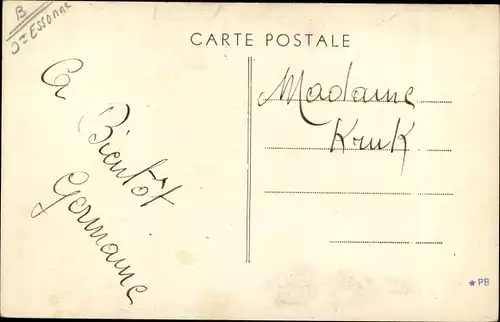 B
D=Essonne
CARTE POSTALE
A
Bientôt
Germaine
Madame
Kruk
*PB